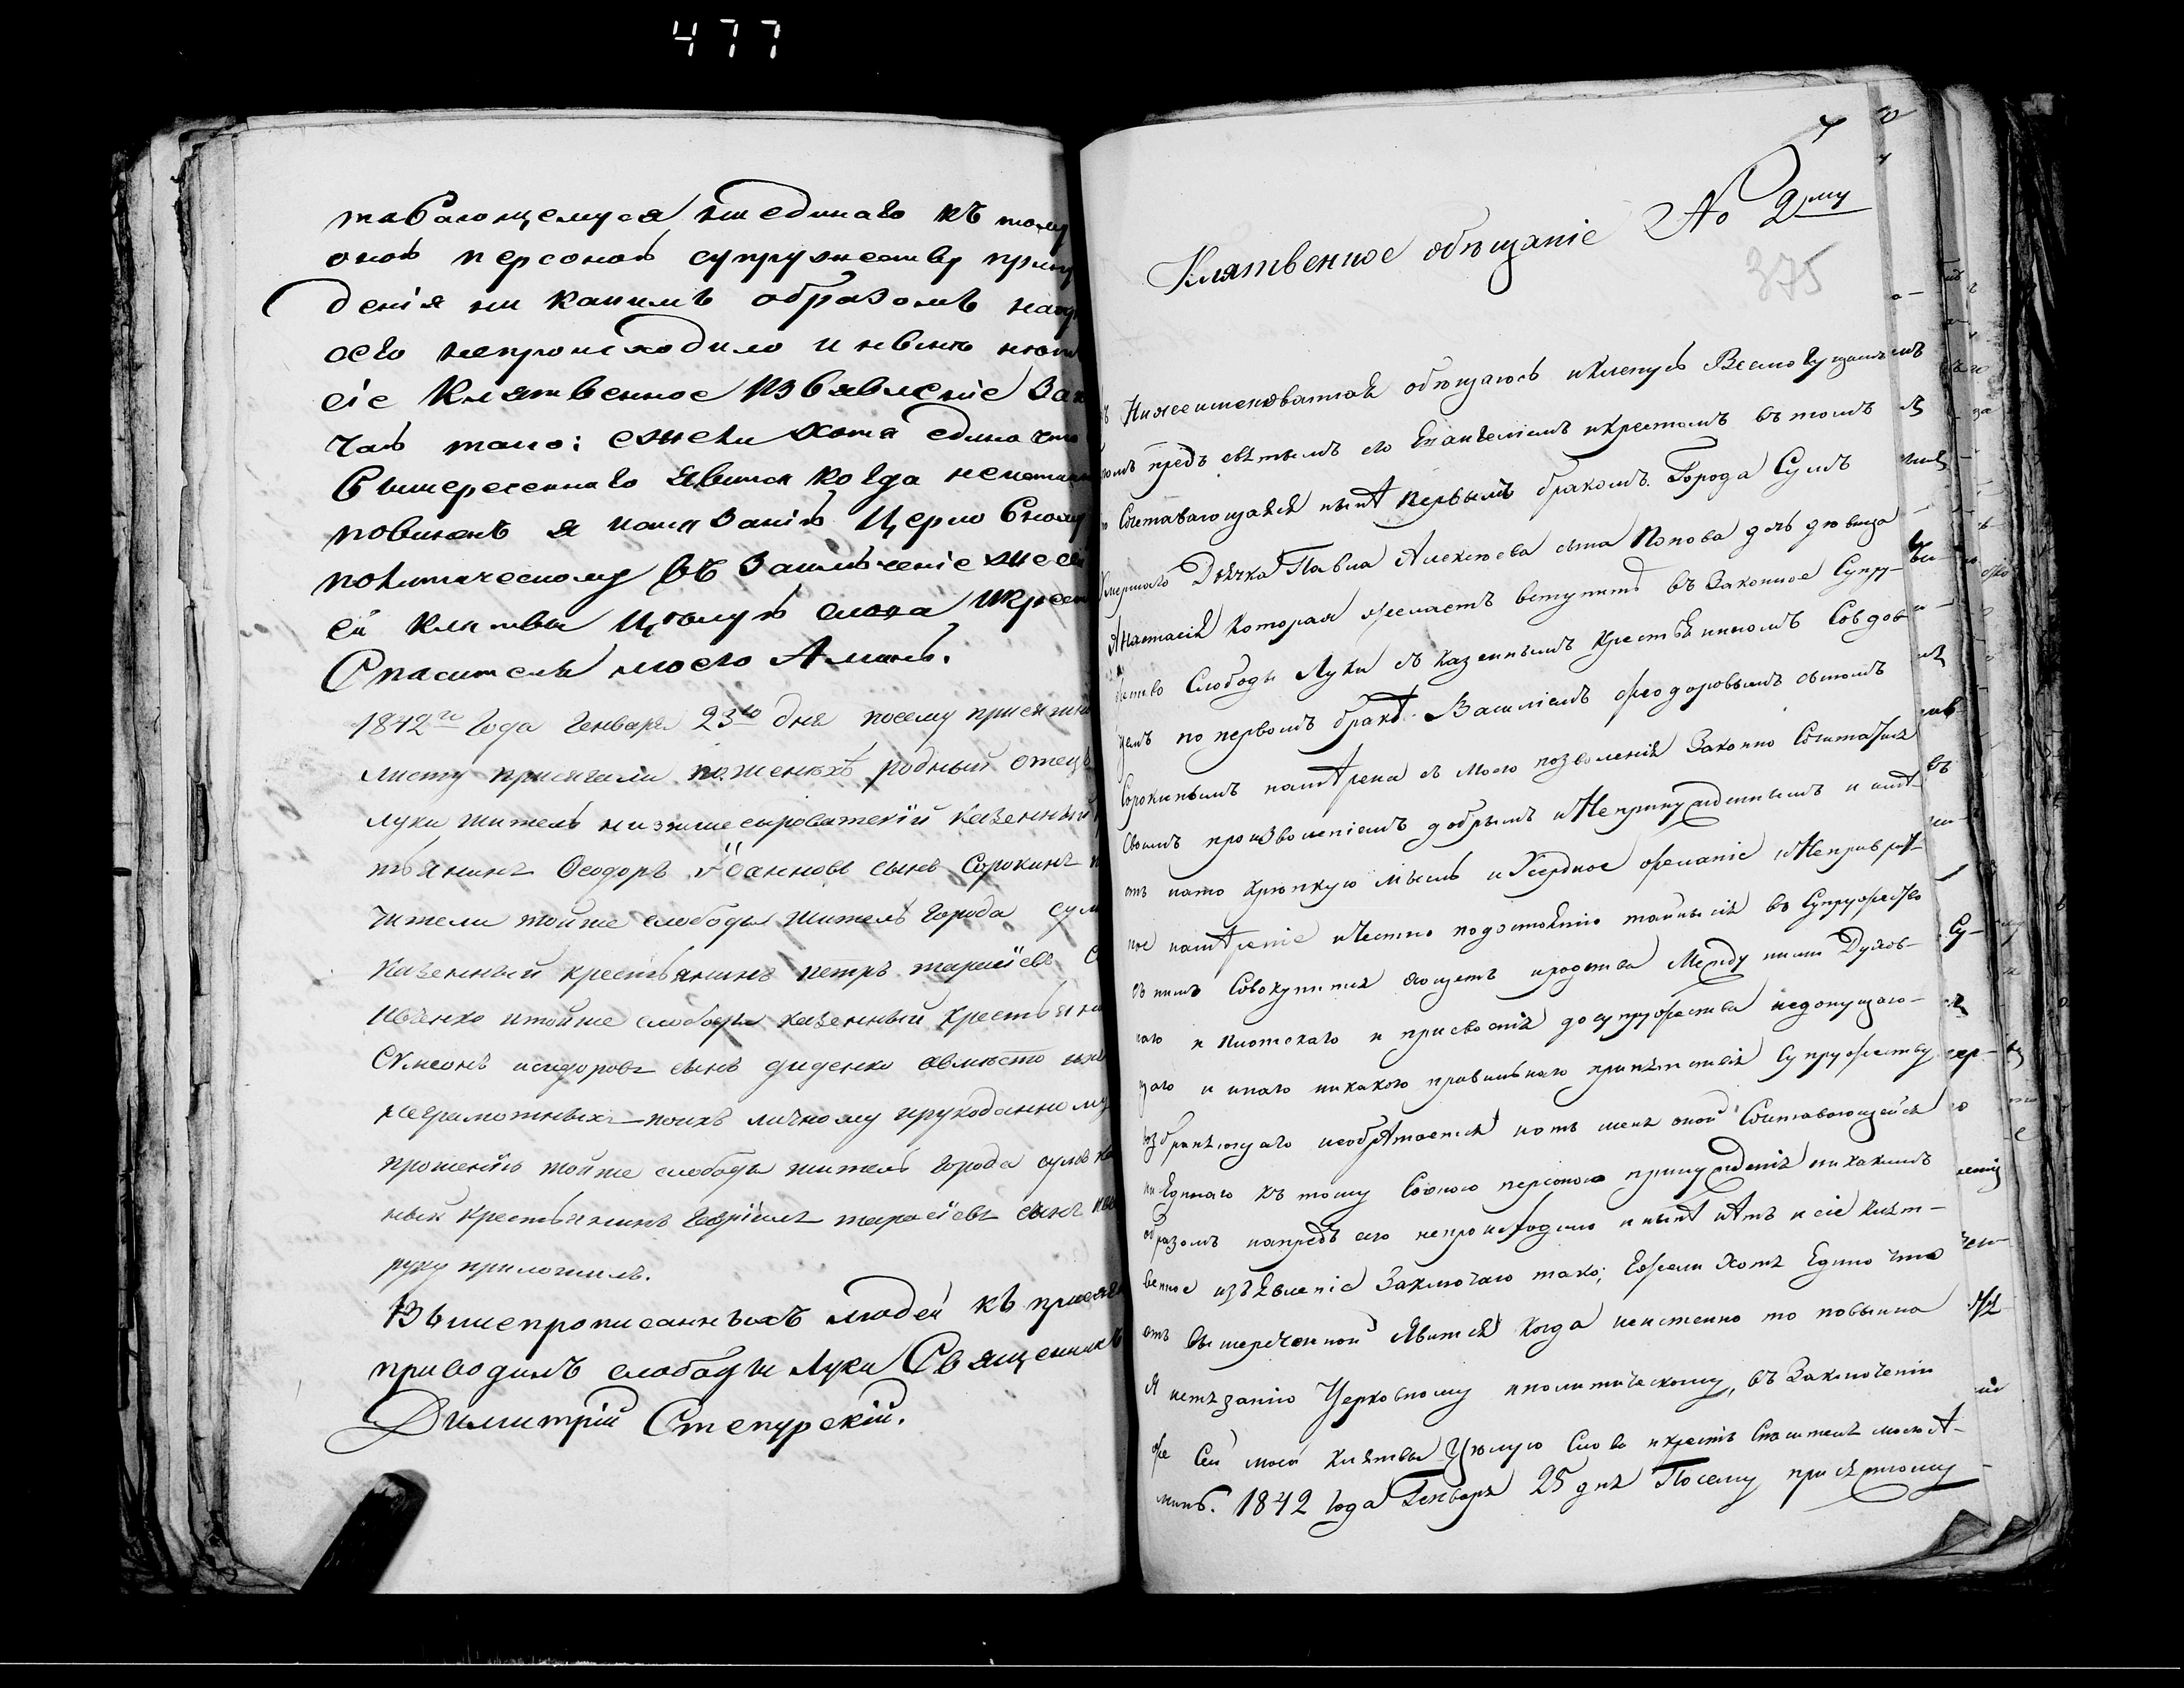 477
тавающемуся ни единаго къ тому
оной персоной супружеству прину
денія ни какимъ образомъ напр
сего непроисходило и нынѣ нѣт
сіе Клятвенное Изъявленіе Зак
чаю тако: ежели хотя едино что
Вышереченнаго Явится когда неистин
повиненъ я истязанію Церковному
политическому въ Заключеніе же се
ей клятвы Цѣлую слова и крест
Спасителя моего Аминь.
1842го Года Генваря 23го дня посему присяжно
листу присягали поженихѣ родный отецъ
луки житель нижнесыроватскій казенный
тьянинъ Феодоръ Иоанновъ сынъ Сорокинъ п
чители тойже слободы житель города сум
казенный крестьянинъ петръ тарасіевъ с
ивченко итойже слободы казенный крестьяни
Симеонъ исидоровъ сынъ диденко авмѣсто ихъ
неграмотныхъ поихъ личному ирукоданному
прошенію тойже слободы житель города сумъ ка
ный крестьянинъ Гавріилъ тарасіевъ сынъ ивч
руку приложилъ.
Вышепрописанныхъ людей къ присяг
приводилъ слободы Луки Священникъ
Димитрій Степурскій.
7
No 2му
Клятвенное обѣщаніе
375
Нижеименованная обѣщаюсь иКленусь Всемогущимъ
предъ святымъ его Евангеліемъ икрестомъ въ томъ
Сочетавающаяся нынѣ первымъ бракомъ Города Сумъ
Умершаго Дьячка Павла Алексѣева сына Попова дочь дѣвица
Анастасія которая желаетъ вступить въ Законное Супру-
жество Слободы Луки съ казеннымъ крестьяниномъ Совдов-
цемъ по первомъ бракѣ Василіемъ феодоровымъ сыномъ
Сорокинымъ намѣрена съ Моего позволенія Законно Сочетатися
Своимъ произволеніемъ добрымъ иНепринужденнымъ и имѣ-
етъ нато крѣпкую мысль иУсердное желаніе иНепривра-
ное намѣреніе иЧестно подостоянію тайны сія въ Супружество
съ нимъ Совокупится хощетъ иродства Между ними Духов-
наго и Плотскаго и присвоенія досупружества недопущаю-
щаго и инаго никакого правильнаго припятствія Супружеству
возбраняющаго необрѣтается и отъ меня оной Сочетавающейся
ни Единаго къ тому Сооною персоною принужденія никакимъ
образомъ напредъ сего непроисходило и нынѣ нѣтъ и сіе Клят-
венное изъявленіе Заключаю тако; Ежели Хотя Едино что
отъ вышереченной Явится когда неистенно то повынна
Я истязанію Церковному иполитическому, въ Заключеніи
же Сей моей клятвы Цѣлую Слова икрестъ Спасителя моего А-
минь. 1842 года Генваря 25 дня Посему присяжному